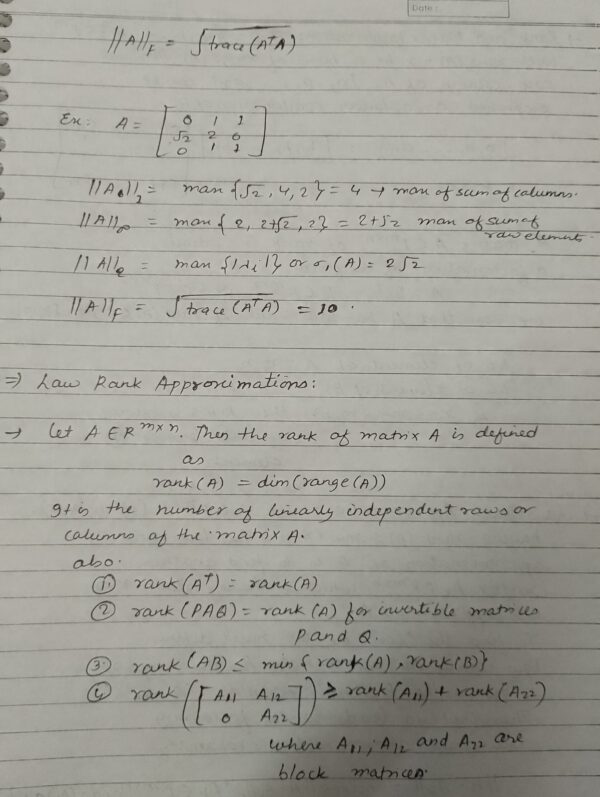 Date:
||A||_F = √trace(AᵀA)
Ex: A = [0 1 1; √2 2 0; 0 1 1]
||A||₁ = max {√2, 4, 2} = 4 → max of sum of columns.
||A||∞ = max { 2, 2+√2, 2} = 2+√2 max of sum of
row elements.
||A||₂ = max {|λᵢ|} or σ₁(A) = 2√2
||A||_F = √trace(AᵀA) = 10.
⇒ Low Rank Approximations:
→ Let A ∈ R^{m×n}. Then the rank of matrix A is defined
as
rank(A) = dim(range(A))
It is the number of linearly independent rows or
columns of the matrix A.
also.
① rank(Aᵀ) = rank(A)
② rank(PAQ) = rank(A) for invertible matrices
P and Q.
③ rank(AB) ≤ min{rank(A), rank(B)}
④ rank([A₁₁ A₁₂; 0 A₂₂]) ≥ rank(A₁₁) + rank(A₂₂)
where A₁₁, A₁₂ and A₂₂ are
block matrices.